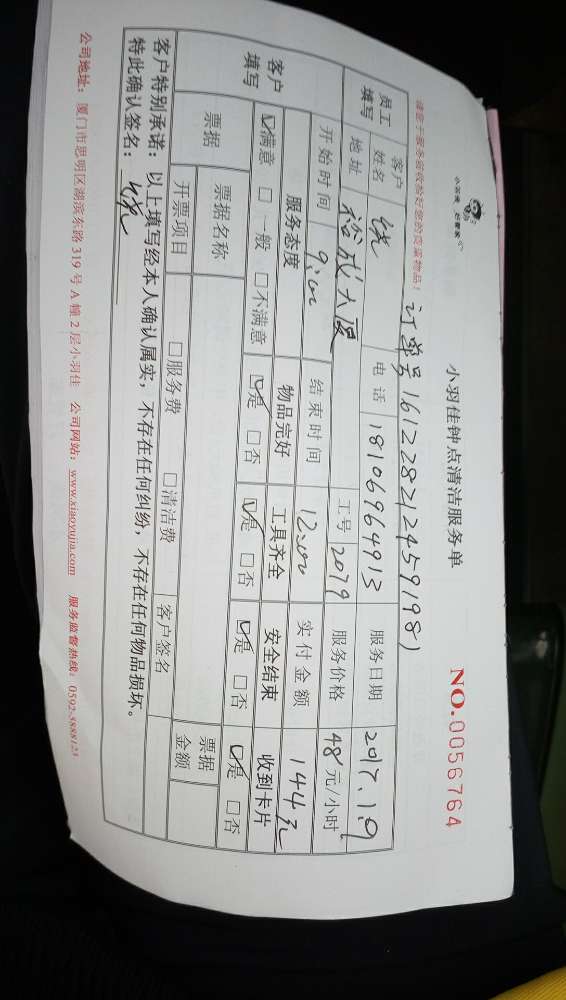 小羽佳钟点清洁服务单
NO.0056764
小羽佳 好管家
订单号 161228212459198)
请您于服务前收拾好您的贵重物品!
员工填写 客户姓名 电话 18106964913 服务日期 2017.1.9
地址 裕成大厦 工号 2079 服务价格 48元/小时
开始时间 9:00 结束时间 12:00 实付金额 144元
客户填写 服务态度 物品完好 工具齐全 安全结束 收到卡片
☑满意 □一般 □不满意 ☑是 □否 ☑是 □否 ☑是 □否 ☑是 □否
票据 票据名称 票据金额
开票项目 □服务费 □清洁费 客户签名
客户特别承诺:以上填写经本人确认属实,不存在任何纠纷,不存在任何物品损坏。
特此确认签名:
公司地址:厦门市思明区湖滨东路319号A幢2层小羽佳 公司网站:www.xiaoyujia.com 服务监督热线:0592-3888123